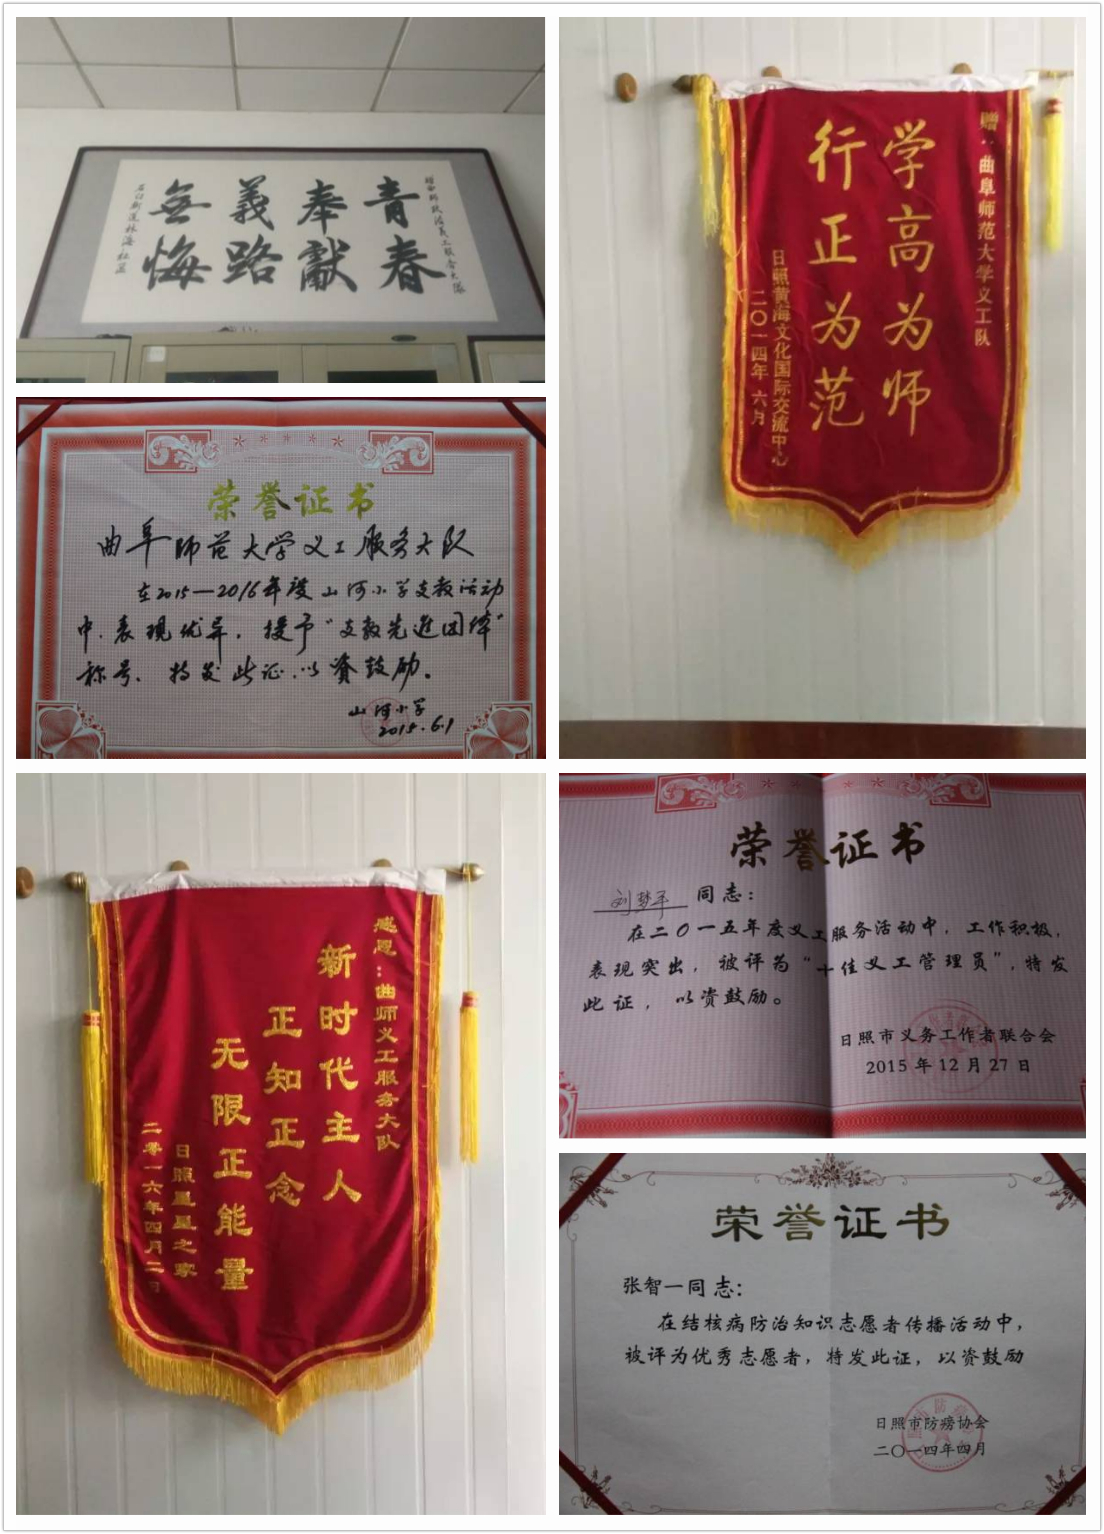 青春
奉獻
義路
無悔
石臼街道林海社區
赠:曲阜师范大学义工队
学高为师
行正为范
日照黄海文化国际交流中心
二〇一四年六月
荣誉证书
曲阜师范大学义工服务大队
在2015—2016年度山河小学支教活动
中,表现优异,授予"支教先进团体"
称号、特发此证,以资鼓励。
山河小学
2015.6.1
感恩:曲师义工服务大队
新时代主人
正知正念
无限正能量
日照星星之家
二零一六年四月二日
荣誉证书
刘梦平 同志:
在二〇一五年度义工服务活动中,工作积极,
表现突出,被评为"十佳义工管理员",特发
此证,以资鼓励。
日照市义务工作者联合会
2015年12月27日
荣誉证书
张智一同志:
在结核病防治知识志愿者传播活动中,
被评为优秀志愿者,特发此证,以资鼓励
日照市防痨协会
二〇一四年四月